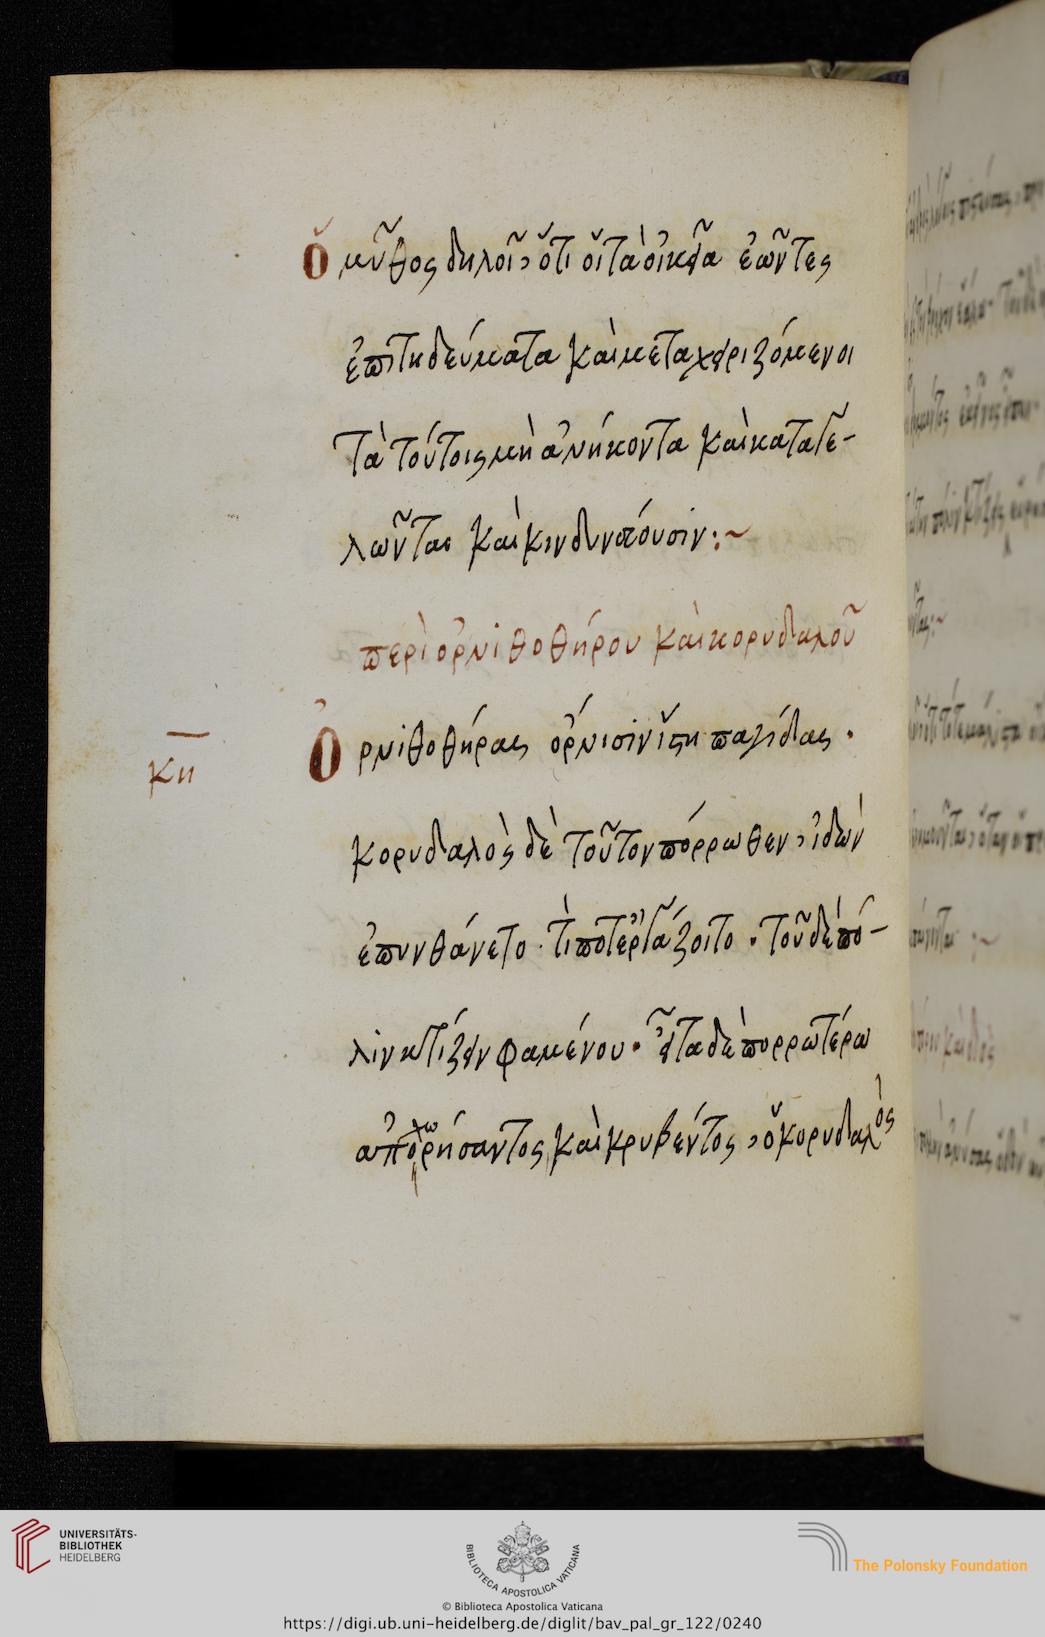 Ὁ μῦθος δηλοῖ, ὅτι οἵ τὰ οἰκεῖα ἐῶντες
ἐπιτηδεύματα καὶ μεταχειριζόμενοι
τὰ τούτοις μὴ ἀνήκοντα καὶ καταγε-
λῶνται καὶ κινδυνεύουσιν :~
περὶ ὀρνιθοθήρου καὶ κορυδαλοῦ
κη
Ὀρνιθοθήρας ὄρνισιν ἵστη παγίδας ·
κορυδαλὸς δὲ τοῦτον πόρρωθεν, ἰδὼν
ἐπυνθάνετο · τί ποτ' ἐργάζοιτο · τοῦ δὲ πό-
λιν κτίζειν φαμένου · εἶτα δὲ πορρωτέρω
ἀποχωρήσαντος καὶ κρυβέντος, ὁ κορυδαλὸς
UNIVERSITÄTS-
BIBLIOTHEK
HEIDELBERG
BIBLIOTECA APOSTOLICA VATICANA
The Polonsky Foundation
© Biblioteca Apostolica Vaticana
https://digi.ub.uni-heidelberg.de/diglit/bav_pal_gr_122/0240